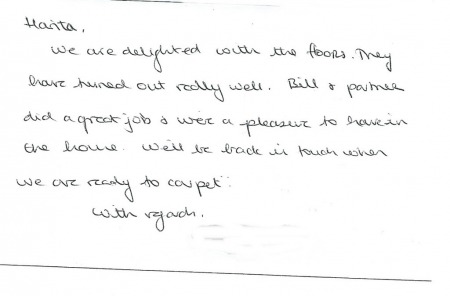 We are delighted with the floors. They
have turned out really well. Bill & partner
did a great job & were a pleasure to have in
the home. We'll be back in touch when
we are ready to carpet
With regards.